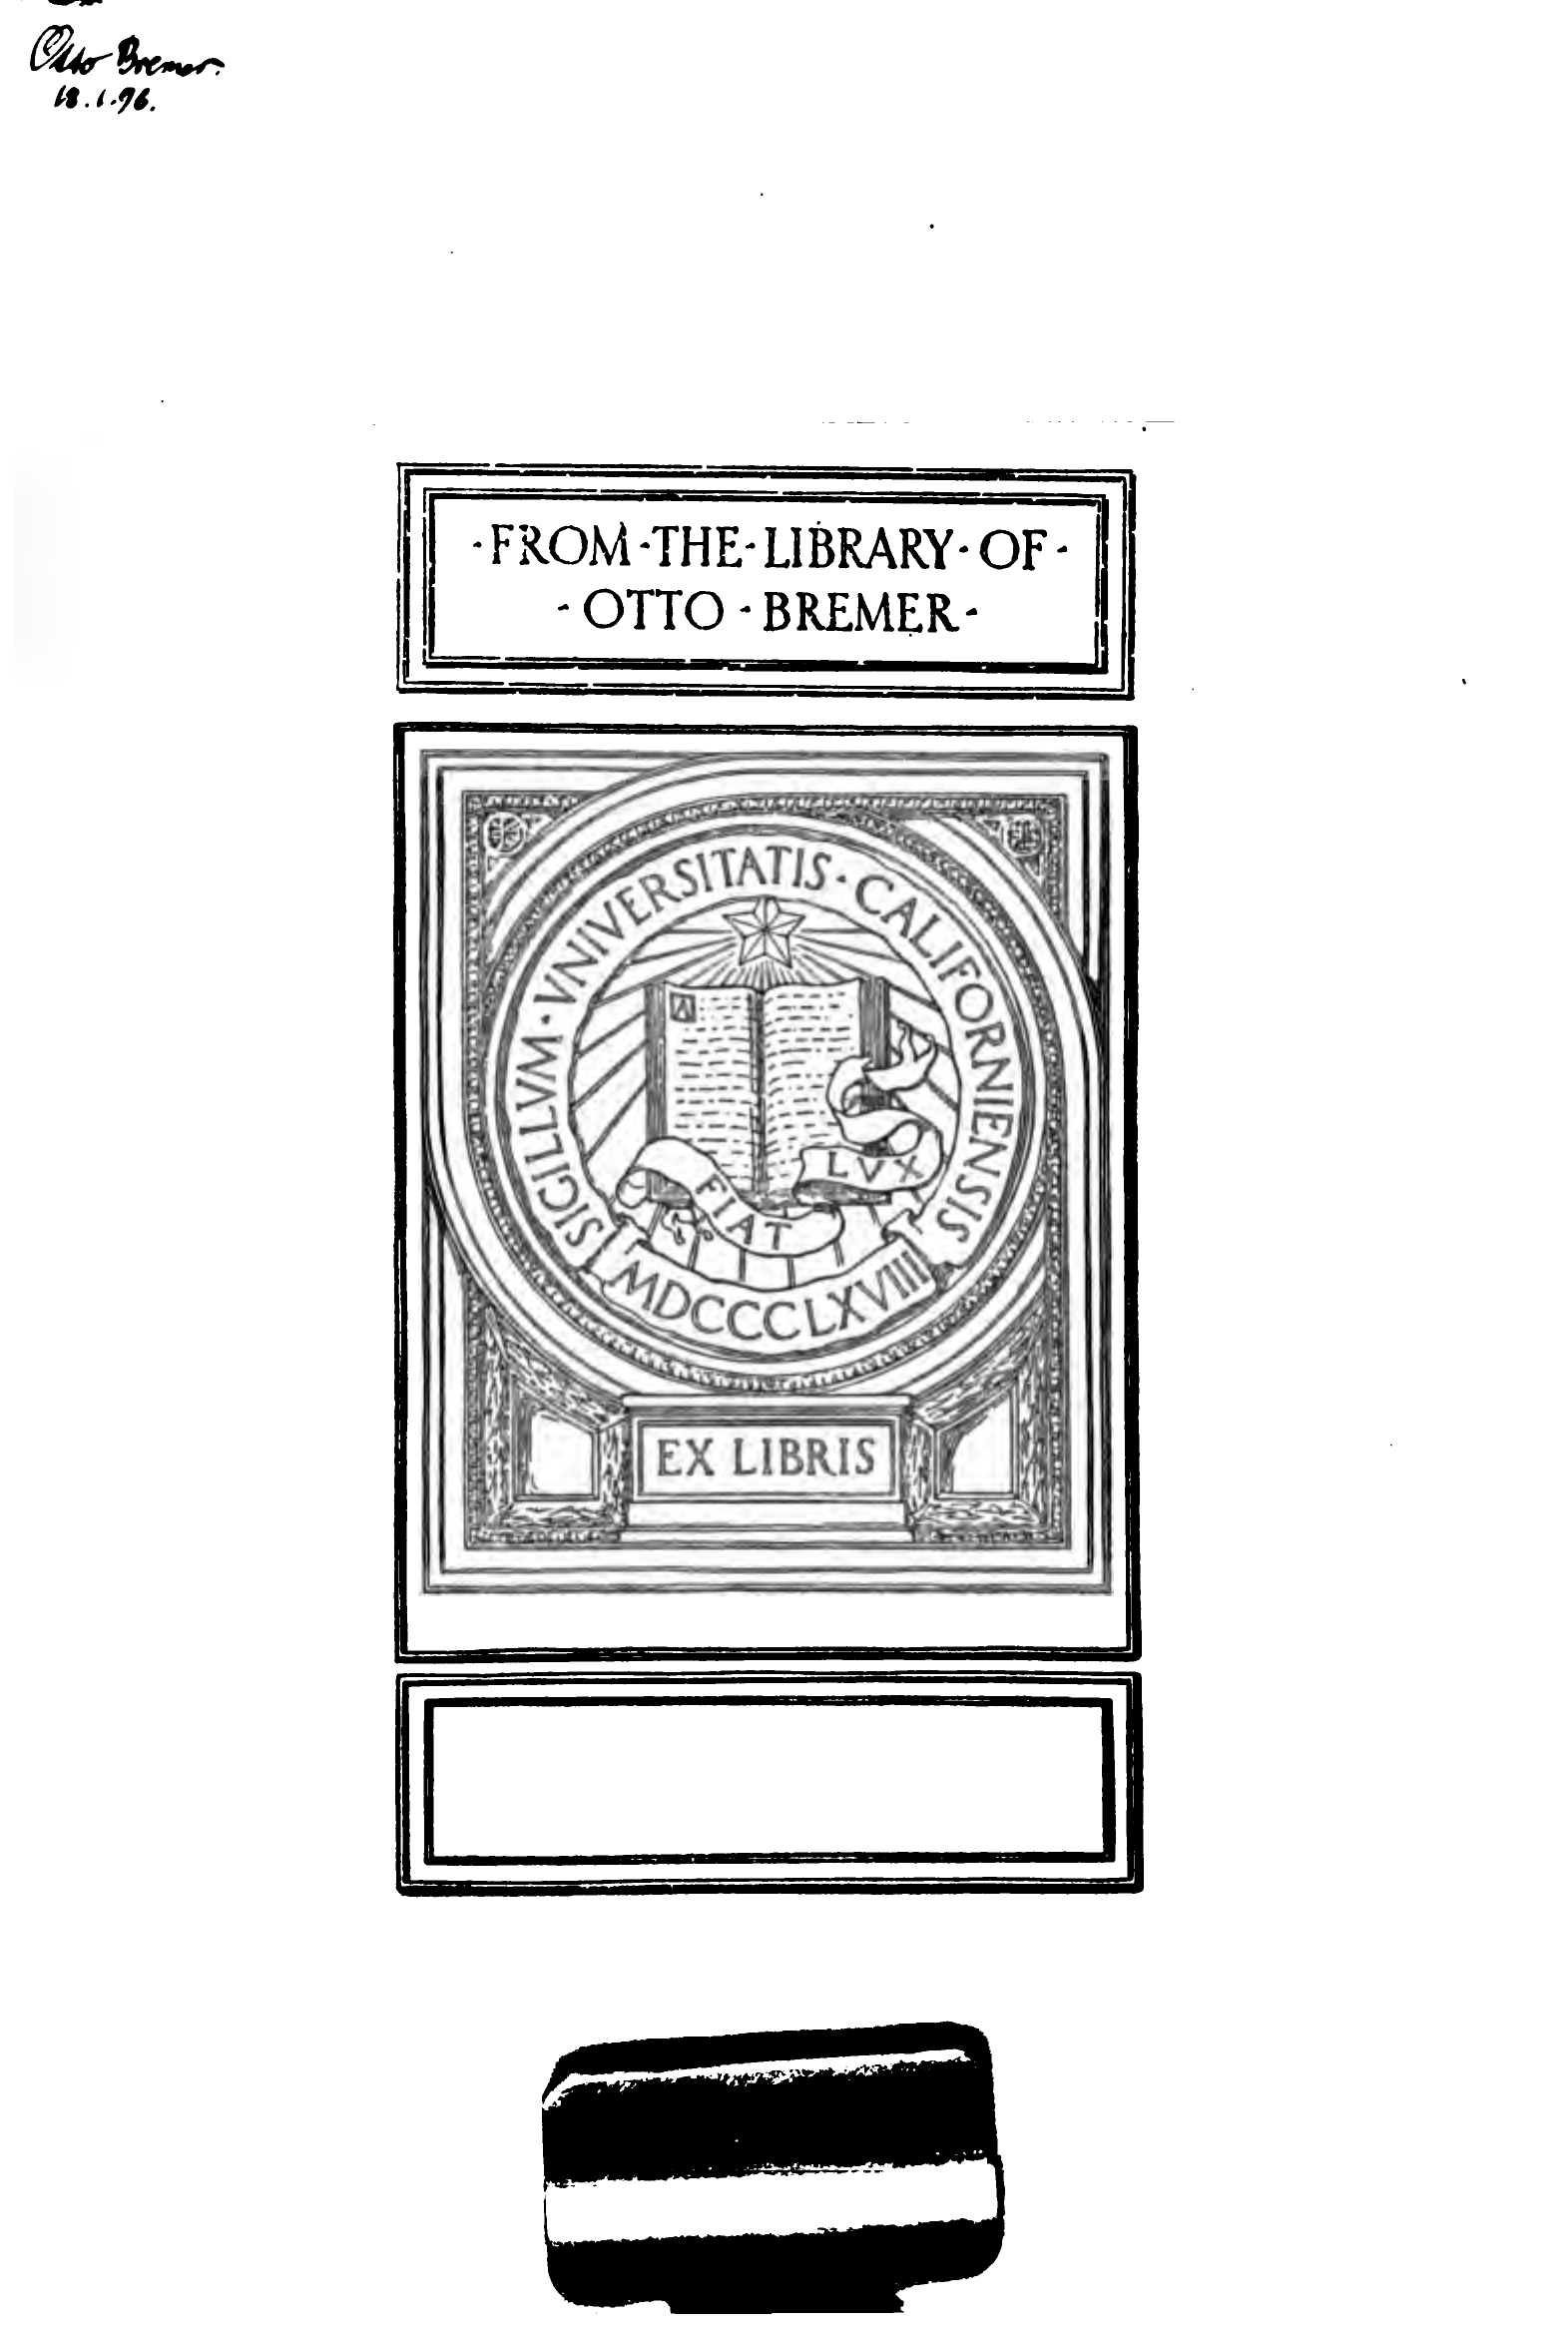 Otto Bremer.
18.1.96.
·FROM·THE·LIBRARY·OF·
·OTTO·BREMER·
SIGILLVM·VNIVERSITATIS·CALIFORNIENSIS
A
LVX
FIAT
MDCCCLXVIII
EX LIBRIS